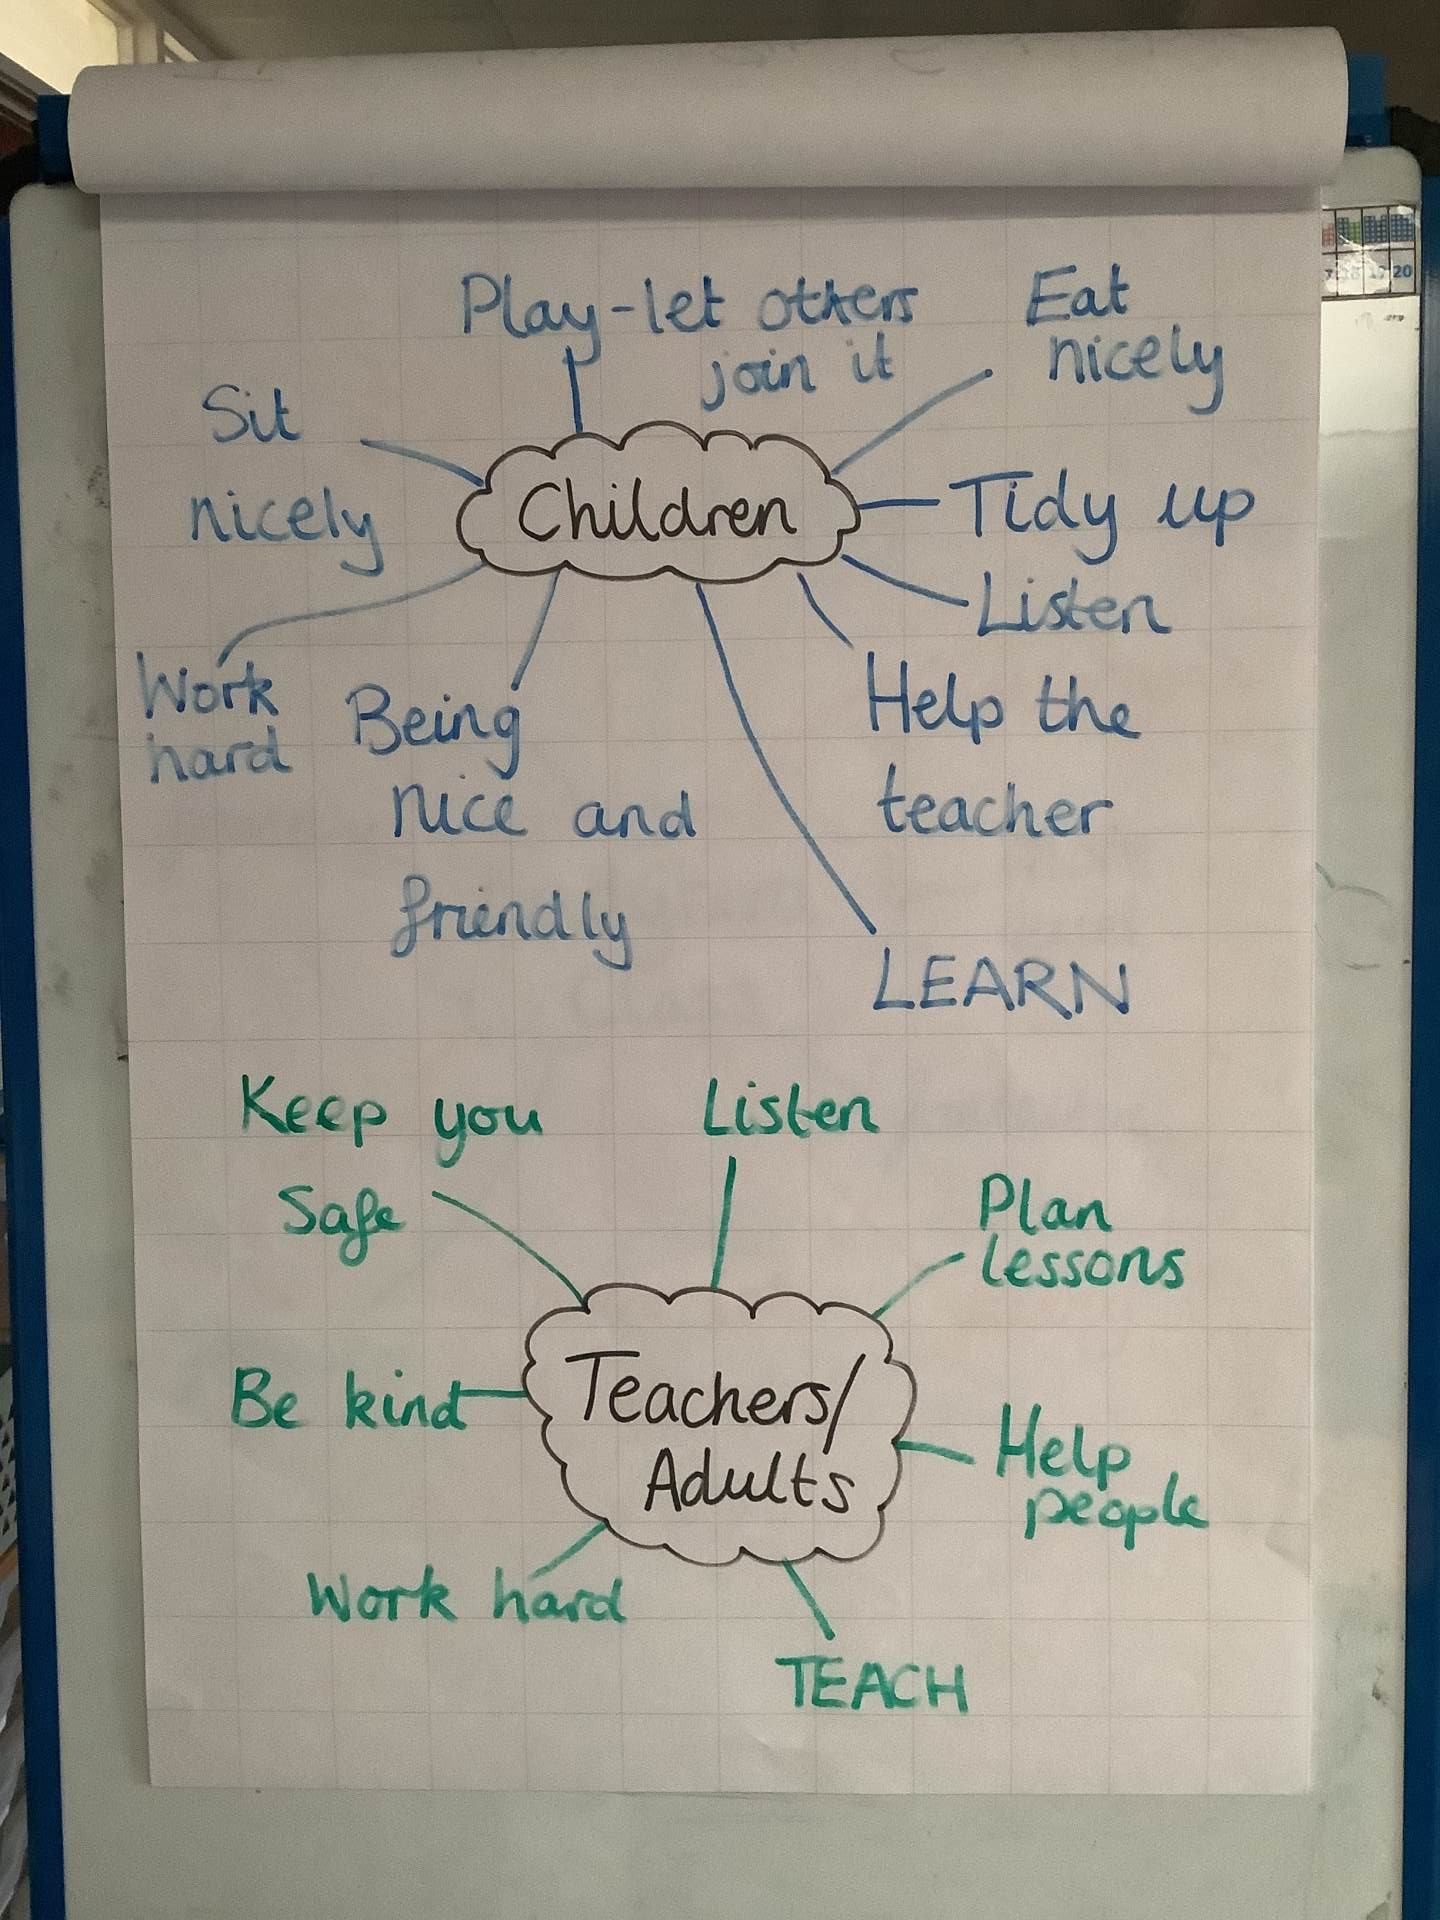 Play-let others
join it
Eat
nicely
Sit
nicely
Children
Tidy up
Listen
Work
hard
Being
nice and
friendly
Help the
teacher
LEARN
Keep you
Safe
Listen
Plan
lessons
Be kind
Teachers/
Adults
Help
people
Work hard
TEACH
20